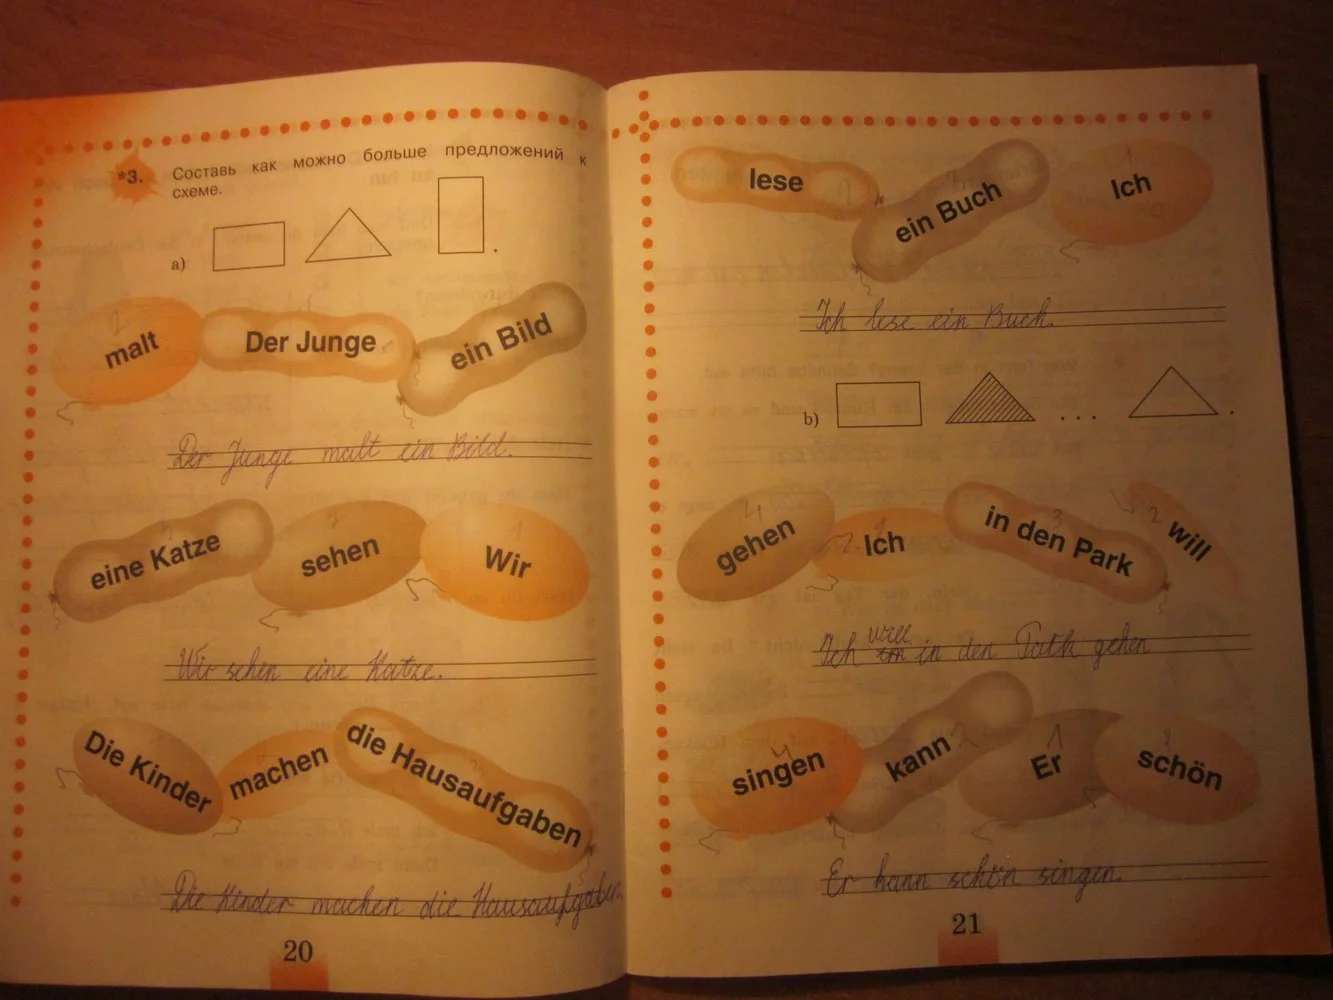 *3. Составь как можно больше предложений к
схеме.
a)
malt Der Junge ein Bild
Der Junge malt ein Bild.
eine Katze sehen Wir
Wir sehen eine Katze.
Die Kinder machen die Hausaufgaben
Die Kinder machen die Hausaufgaben.
20
lese ein Buch Ich
Ich lese ein Buch.
b) ... .
gehen Ich in den Park will
will
Ich in den Park gehen
singen kann Er schön
Er kann schön singen.
21